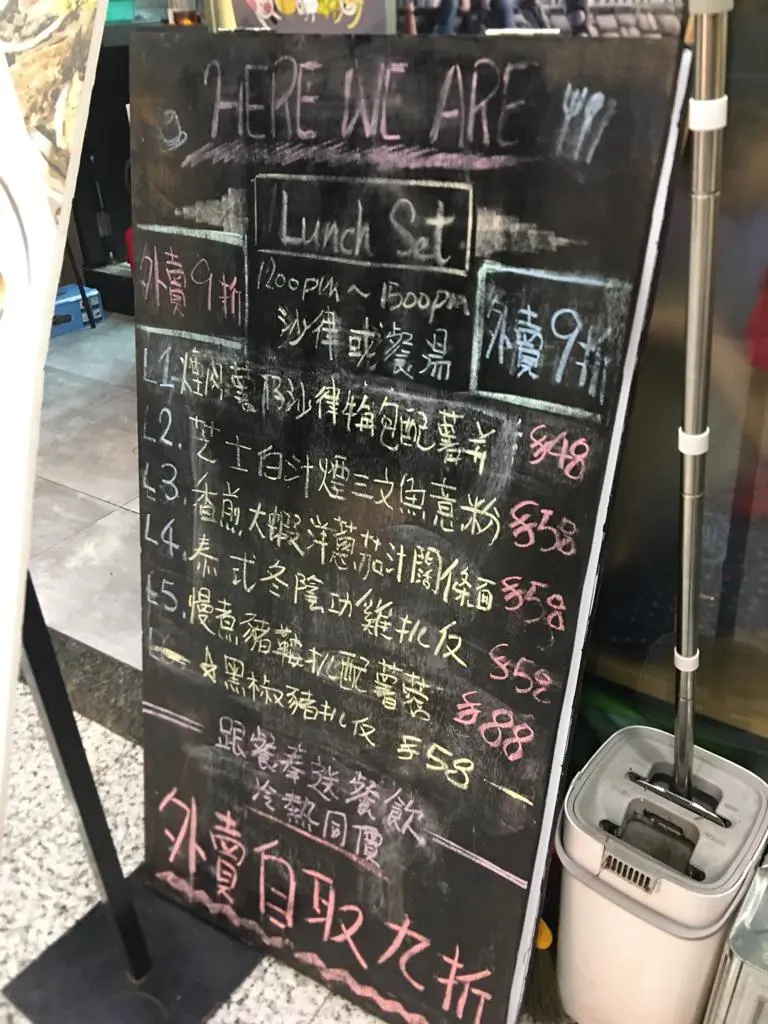 HERE WE ARE
Lunch Set
外賣9折
1200pm ~ 1500pm
外賣9折
沙律或餐湯
L1 煙肉薯仔沙律牛角包配薯片 $48
L2. 芝士白汁煙三文魚意粉 $58
L3. 香煎大蝦洋蔥茄汁闊條麵 $58
L4. 泰式冬陰功雞扒反 $58
L5. 慢煮豬鞍扒配薯蓉 $88
☆黑椒豬扒反 $58
跟餐奉送餐飲
冷熱同價
外賣自取九折